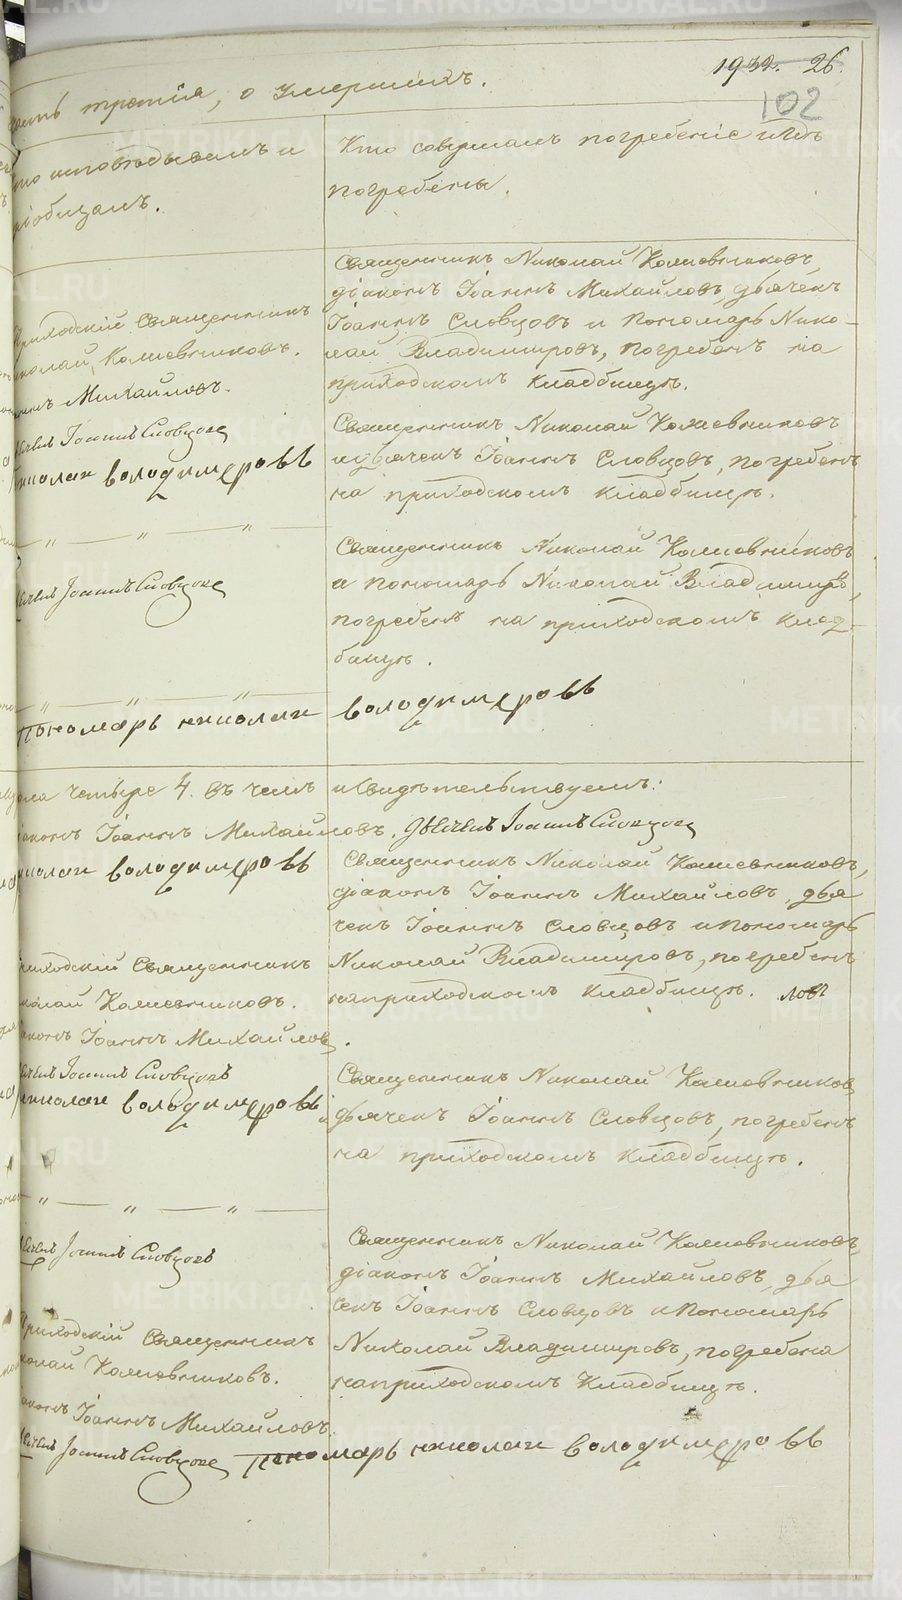 1932. 26.
102
часть третія, о умершихъ.
кто исповѣдывалъ и
пріобщалъ.
Кто совершалъ погребеніе и гдѣ
погребены.
Приходскій Священникъ
Николай Колшевниковъ.
Михайловъ.
Іоаннъ Словцовъ
николаи володимеровъ
Священникъ Николай
діаконъ Іоаннъ Михайловъ, дьячекъ
Іоаннъ Словцовъ и Пономарь Нико-
лай Владимировъ, погребенъ на
приходскомъ кладбищѣ.
Священникъ Николай
и дьячекъ Іоаннъ Словцовъ, погребенъ
на приходскомъ кладбищѣ.
Іоаннъ Словцовъ
Священникъ Николай
и пономарь Николай Владимиров,
погребенъ на приходскомъ клад-
бищѣ.
Пономарь николаи володимеровъ
четыре 4. въ чемъ и свидѣтельствуемъ:
діаконъ Іоаннъ Михайловъ. Дьячекъ Іоаннъ Словцовъ
николаи володимеровъ
Священникъ Николай
діаконъ Іоаннъ Михайловъ, дья
чекъ Іоаннъ Словцовъ и Пономарь
Николай Владимировъ, погребенъ
на приходскомъ кладбищѣ. ловъ
Приходскій Священникъ
Николай
діаконъ Іоаннъ Михайлов.
Іоаннъ Словцовъ
николаи володимеровъ
Священникъ Николай
и дьячекъ Іоаннъ Словцовъ, погребенъ
на приходскомъ кладбищѣ.
Іоаннъ Словцовъ
Священникъ Николай
діаконъ Іоаннъ Михайловъ, дья
чекъ Іоаннъ Словцовъ и Пономарь
Николай Владимировъ, погребена
на приходскомъ кладбищѣ.
Приходскій Священникъ
Николай
діаконъ Іоаннъ Михайловъ.
Іоаннъ Словцовъ Пономарь николаи володимеровъ
METRIKI.GASO-URAL.RU